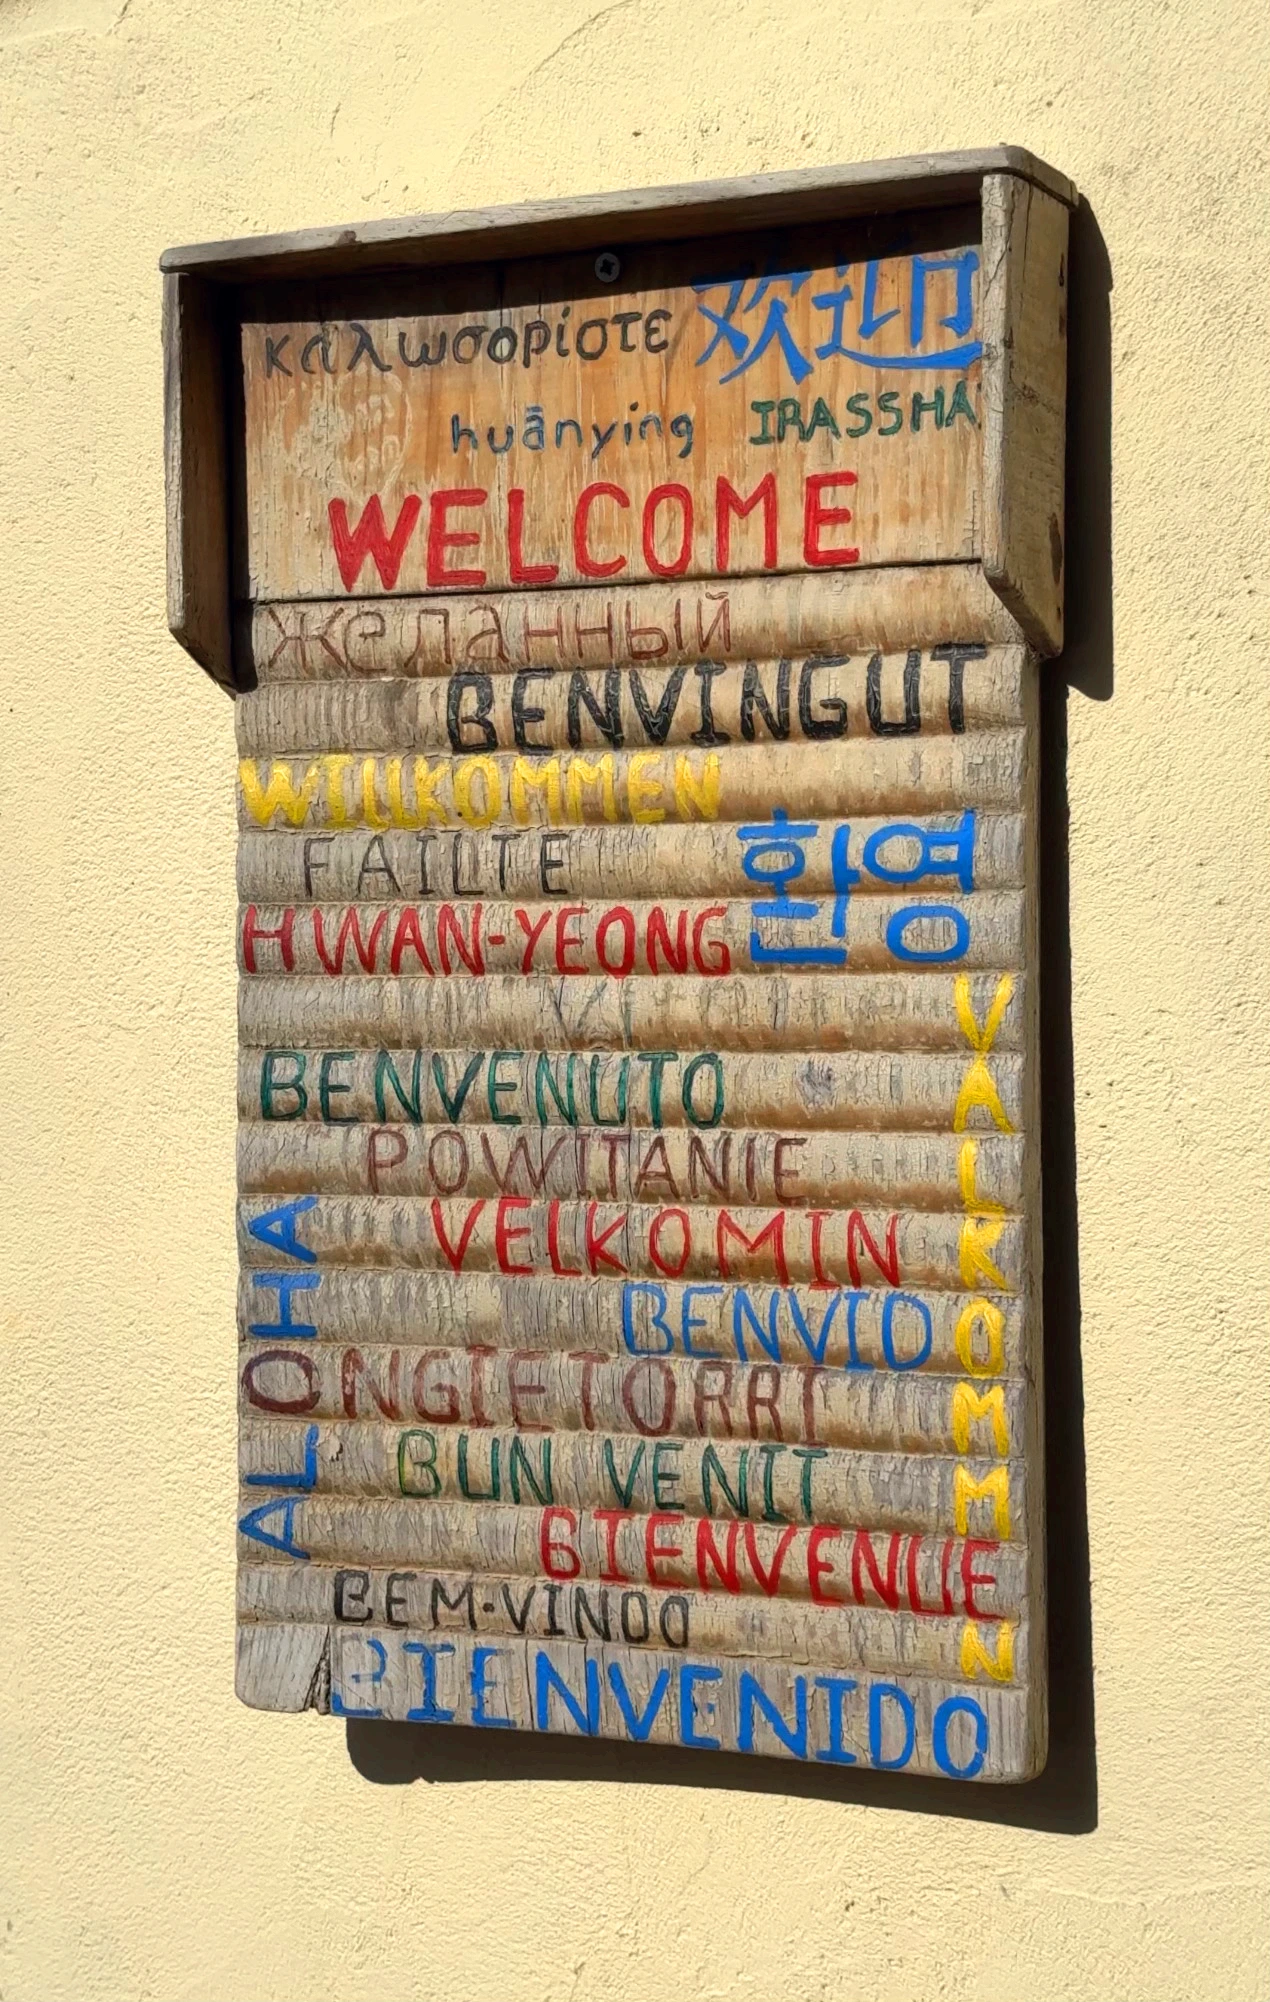 καλωσορίστε 欢迎
huānyíng IRASSHA
WELCOME
желанный
BENVINGUT
WILLKOMMEN
FAILTE 환영
HWAN-YEONG
VALKOMMEN
BENVENUTO
POWITANIE
VELKOMIN
ALOHA
BENVID
ONGIETORRI
BUN VENIT
BIENVENUE
BEM·VINDO
BIENVENIDO